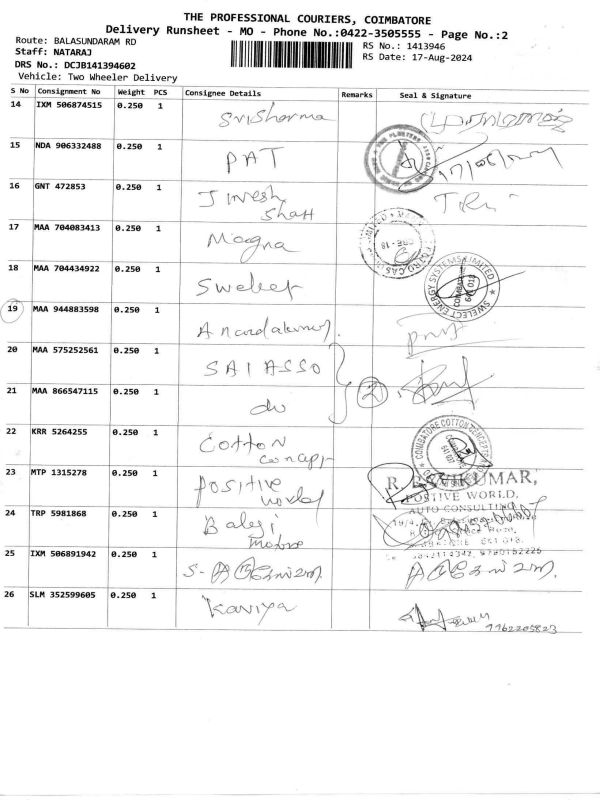 THE PROFESSIONAL COURIERS, COIMBATORE
Delivery Runsheet - MO - Phone No.:0422-3505555 - Page No.:2
Route: BALASUNDARAM RD
RS No.: 1413946
Staff: NATARAJ
RS Date: 17-Aug-2024
DRS No.: DCJB141394602
Vehicle: Two Wheeler Delivery
S No Consignment No Weight PCS Consignee Details Remarks Seal & Signature
14 IXM 506874515 0.250 1 Sri Sharma
15 NDA 906332488 0.250 1 PAT
16 GNT 472853 0.250 1 Jinesh
Shah
17 MAA 704083413 0.250 1 Magna
18 MAA 704434922 0.250 1 Swelect
SWELECT ENERGY SYSTEMS LIMITED
COIMBATORE
641 018
19 MAA 944883598 0.250 1
20 MAA 575252561 0.250 1 SAI ASSO
2
21 MAA 866547115 0.250 1 do
22 KRR 5264255 0.250 1 Cotton
Concept
COIMBATORE COTTON CONCEPTS
23 MTP 1315278 0.250 1 Positive
world
POSTIVE WORLD,
AUTO CONSULTING
24 TRP 5981868 0.250 1 Balaji
25 IXM 506891942 0.250 1
26 SLM 352599605 0.250 1 Kaviya